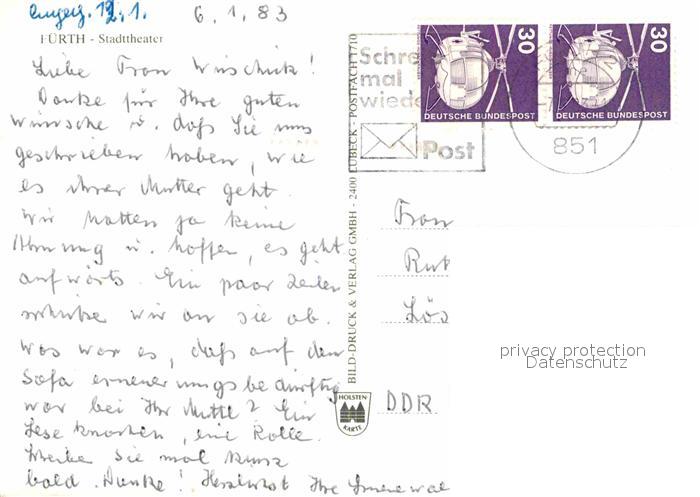 6.1.83
FÜRTH - Stadttheater
Liebe Frau
Danke für Ihre guten
Wünsche u. daß Sie uns
geschrieben haben, wie
es ihrer Mutter geht.
Wir hatten ja keine
Ahnung u. hoffen, es geht
aufwärts. Ein paar Zeilen
schicke wir an sie ab.
Was war es, daß auf dem
Sofa erneuerungsbedürftig
war bei Ihr Mutti? Ein
Leseknochen, eine Rolle.
Schreibe Sie mal kurz
bald. Danke! Herzlichst Ihre
BILD-DRUCK & VERLAG GMBH - 2400 LÜBECK - POSTFACH 1710
HOLSTEN-
KARTE
Schre
mal
wiede
Post
30
DEUTSCHE BUNDESPOST
30
DEUTSCHE BUNDESPOST
851
Frau
Rut
Lös
DDR
privacy protection
Datenschutz